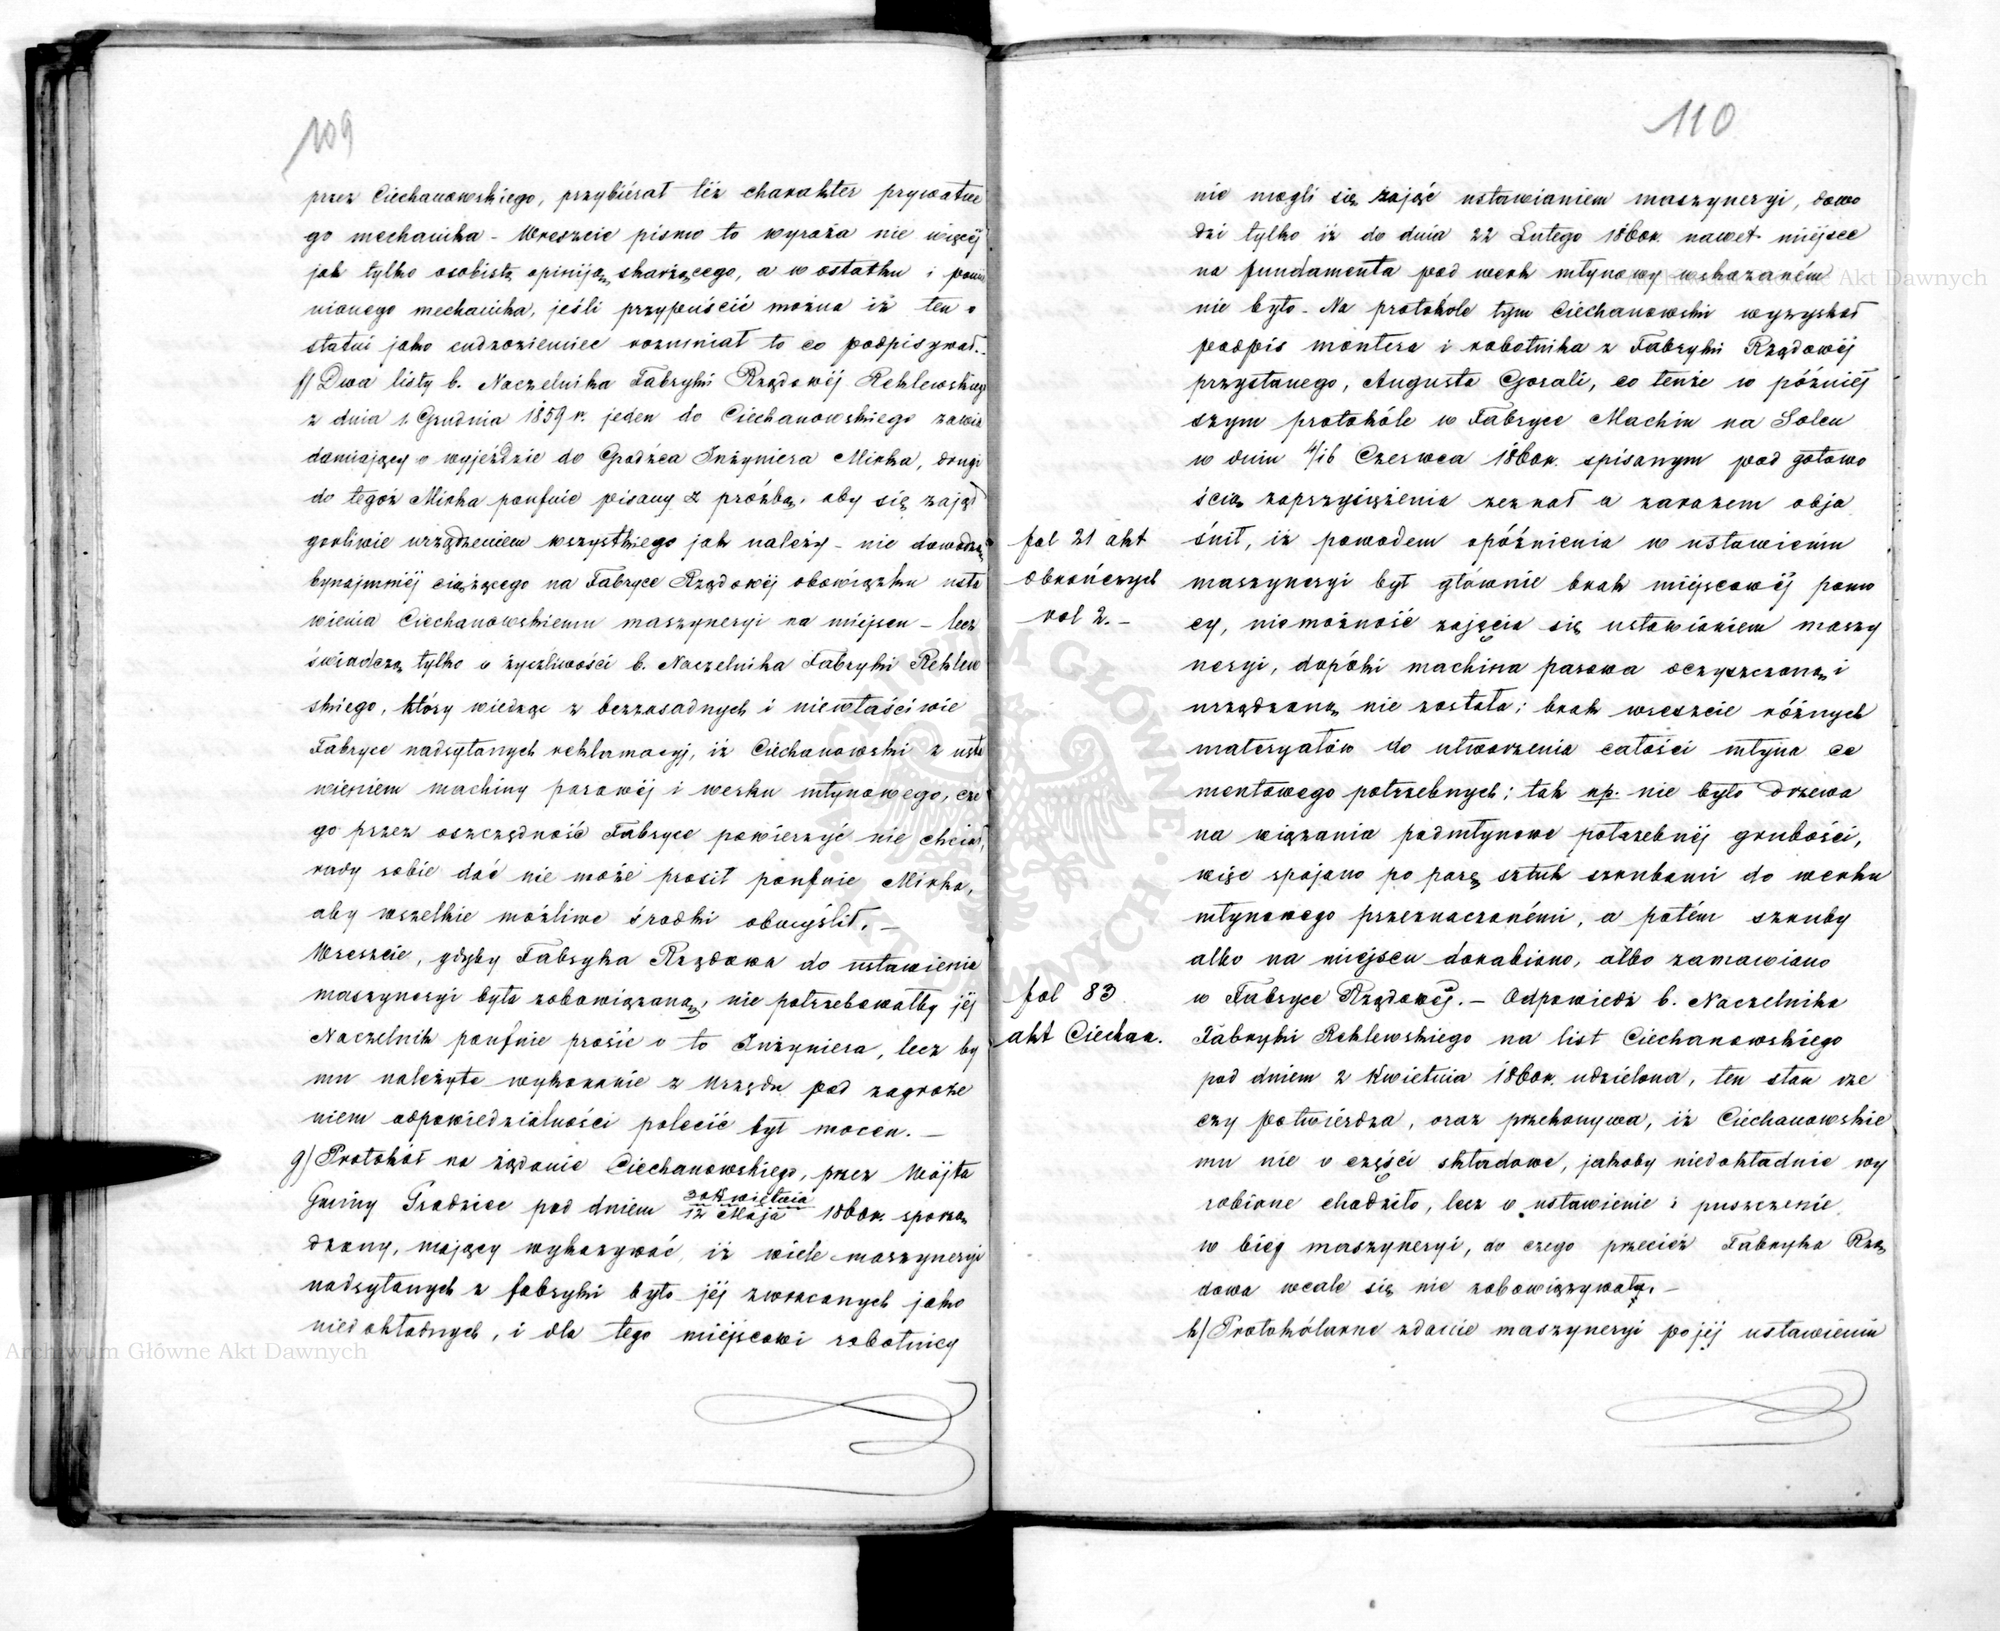 109
przez Ciechanowskiego, przybiérał téż charakter prywatne
go mechanika - Wreszcie pismo to wyraża nie więcéj
jak tylko osobistą opiniją skarżącego, a w ostatku i pomie
nionego mechanika, jeśli przypuścić można iż ten o
statni jako cudzoziemiec rozumiał to co podpisywał.-
f/ Dwa listy b. Naczelnika Fabryki Rządowéj Rehlewskiego
z dnia 1. Grudnia 1859 r. jeden do Ciechanowskiego zawia
damiający o wyjeździe do Grodźca Inżyniera Mirka, drugi
do tegoż Mirka poufnie pisany z prośbą, aby się zajął
gorliwie urządzeniem wszystkiego jak należy - nie dowodzą
bynajmniéj ciążącego na Fabryce Rządowéj obowiązku usta
wienia Ciechanowskiemu maszyneryi na miejscu - lecz
świadczą tylko o życzliwości b. Naczelnika Fabryki Rehlew
skiego, który wiedząc z bezzasadnych i niewłaściwie
Fabryce nadsyłanych reklamacyj, iż Ciechanowski z usta
wieniem machiny parowéj i werku młynowego, cze
go przez oszczędność Fabryce powierzyć nie chciał,
rady sobie dać nie może prosił poufnie Mirka,
aby wszelkie możliwe środki obmyślił. -
Wreszcie, gdyby Fabryka Rządowa do ustawienia
maszyneryi była zobowiązaną, nie potrzebowałby jéj
Naczelnik poufnie prosić o to Inżyniera, lecz by
mu należyte wykonanie z Urzędu pod zagroże
niem odpowiedzialności polecić był mocen. -
g/ Protokół na żądanie Ciechanowskiego, przez Wójta
Gminy Grodziec pod dniem 30 Kwietnia / 12 Maja 1860r. sporzą
dzony, mający wykazywać, iż wiele maszyneryi
nadsyłanych z fabryki było jéj zwracanych jako
niedokładnych, i dla tego miejscowi robotnicy
110
nie mogli się zająć ustawianiem maszyneryi, dowo
dzi tylko iż do dnia 22 Lutego 1860r. nawet miejsce
na fundamenta pod werk młynowy wskazaném
nie było - Na protokóle tym Ciechanowski wyzyskał
podpis montera i robotnika z Fabryki Rządowéj
przysłanego, Augusta Gorali, co tenże w późniéj
szym protokóle w Fabryce Machin na Solcu
w dniu 4/16 Czerwca 1860r. spisanym pod gotowo
ścią zaprzysiężenia zeznał a zarazem obja
śnił, iż powodem opóźnienia w ustawieniu
maszyneryi był głównie brak miejscowéj pomo
cy, niemożność zajęcia się ustawianiem maszy
neryi, dopóki machina parowa oczyszczoną i
urządzoną nie została; brak wreszcie różnych
materyałów do utworzenia całości młyna ce
mentowego potrzebnych; tak np. nie było drzewa
na wiązania podmłynowe potrzebnéj grubości,
więc spajano po parę sztuk szrubami do werku
młynowego przeznaczonémi, a potém szruby
albo na miejscu dorabiano, albo zamawiano
w Fabryce Rządowéj. - Odpowiedź b. Naczelnika
Fabryki Rehlewskiego na list Ciechanowskiego
pod dniem 2 Kwietnia 1860r. udzielona, ten stan rze
czy potwierdza, oraz przekonywa, iż Ciechanowskie
mu nie o części składowe, jakoby niedokładnie wy
robione chodziło, lecz o ustawienie i puszczenie
w bieg maszyneryi, do czego przecież Fabryka Rzą
dowa wcale się nie zobowiązywała. -
h/ Protokólarne zdanie maszyneryi po jéj ustawieniu
fol 21 akt
obrończych
vol 2. -
fol 83
akt Ciechan.
Archiwum Główne Akt Dawnych
Archiwum Główne Akt Dawnych